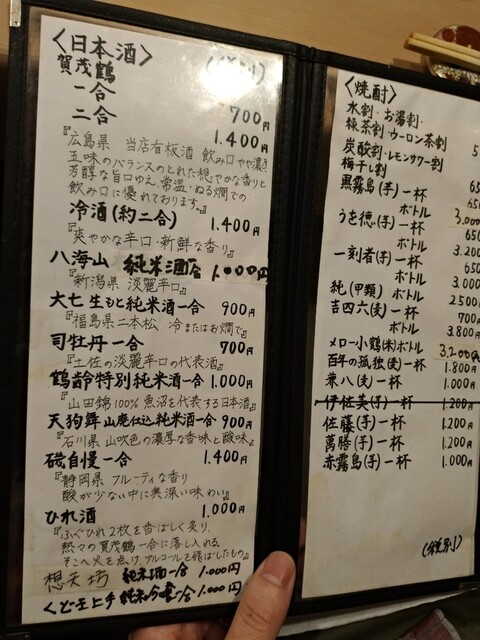 〈日本酒〉
賀茂鶴
一合 700円
二合 1.400円
『広島県 当店看板酒 飲み口やや濃き
五味のバランスのとれた穏やかな香りと
芳醇な旨口ゆえ、常温・ぬる燗での
飲み口に優れております。』
冷酒(約二合) 1.400円
『爽やかな辛口・新鮮な香り』
八海山 純米酒 1.000円
『新潟県 淡麗辛口』
大七 生もと純米酒一合 900円
『福島県二本松 冷またはお燗で』
司牡丹一合 700円
『土佐の淡麗辛口の代表酒』
鶴齢特別純米酒一合 1.000円
『山田錦100% 魚沼を代表する日本酒』
天狗舞 山廃仕込純米酒一合 900円
『石川県 山吹色の濃厚な香味と酸味』
磯自慢一合 1.400円
『静岡県 フルーティな香り
酸が少ない中に奥深い味わい』
ひれ酒 1.000円
『ふぐひれ2枚を香ばしく炙り、
熱々の賀茂鶴一合に落し入れる
そこへ火を点け、アルコールを飛ばしたもの』
想天坊 純米酒一合 1.000円
くどき上手 純米吟醸一合 1.000円
〈焼酎〉
水割・お湯割・
緑茶割・ウーロン茶割
炭酸割・レモンサワー割
梅干し割
黒霧島(芋)一杯 650
ボトル 3.000
うを徳(芋)一杯 650
ボトル 3.200
一刻者(芋)一杯 650
ボトル 3.000
純(甲類)ボトル 2.500
吉四六(麦)一杯 700円
ボトル 3.800円
メロー小鶴(米)ボトル 3.200円
百年の孤独(麦)一杯 1.800円
兼八(麦)一杯 1.000円
伊佐美(芋)一杯 1.200円
佐藤(芋)一杯 1.200円
萬膳(芋)一杯 1.200円
赤霧島(芋)一杯 1.000円
(税別)